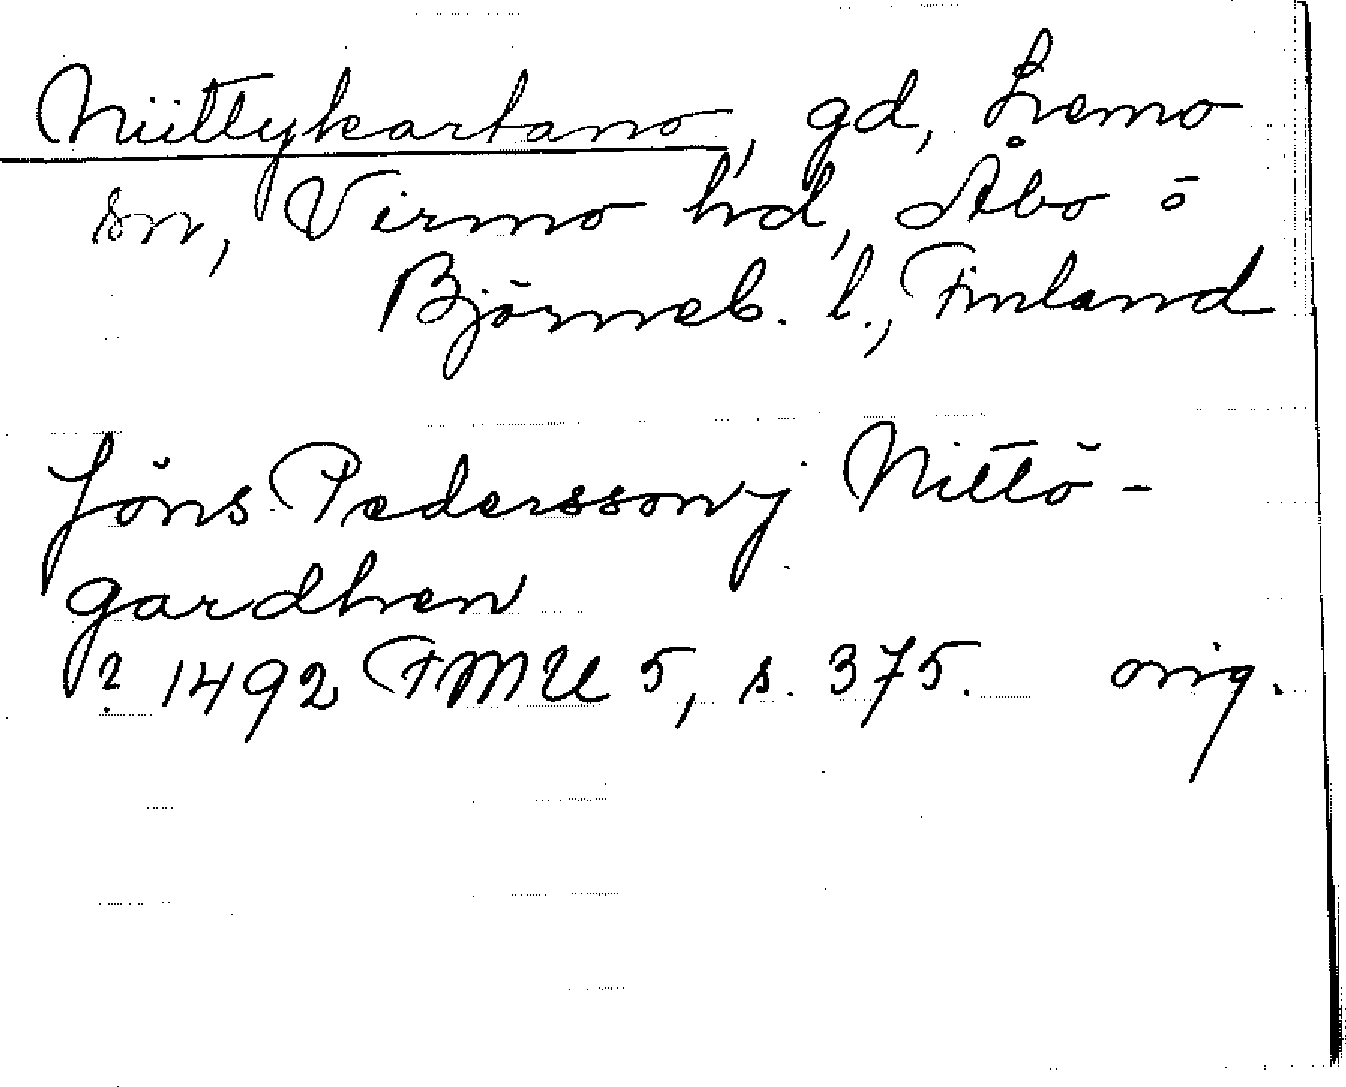 Niittykartano, gd, Lemo
sn, Virmo hd, Åbo o
Björneb. l., Finland
Jöns Pederssony Nittö-
gardhen
? 1492 FMU 5, s. 375. orig.